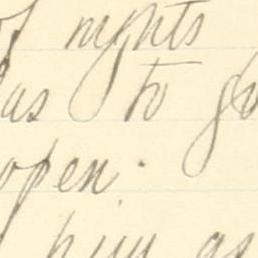 of nights
as to
open.
him as